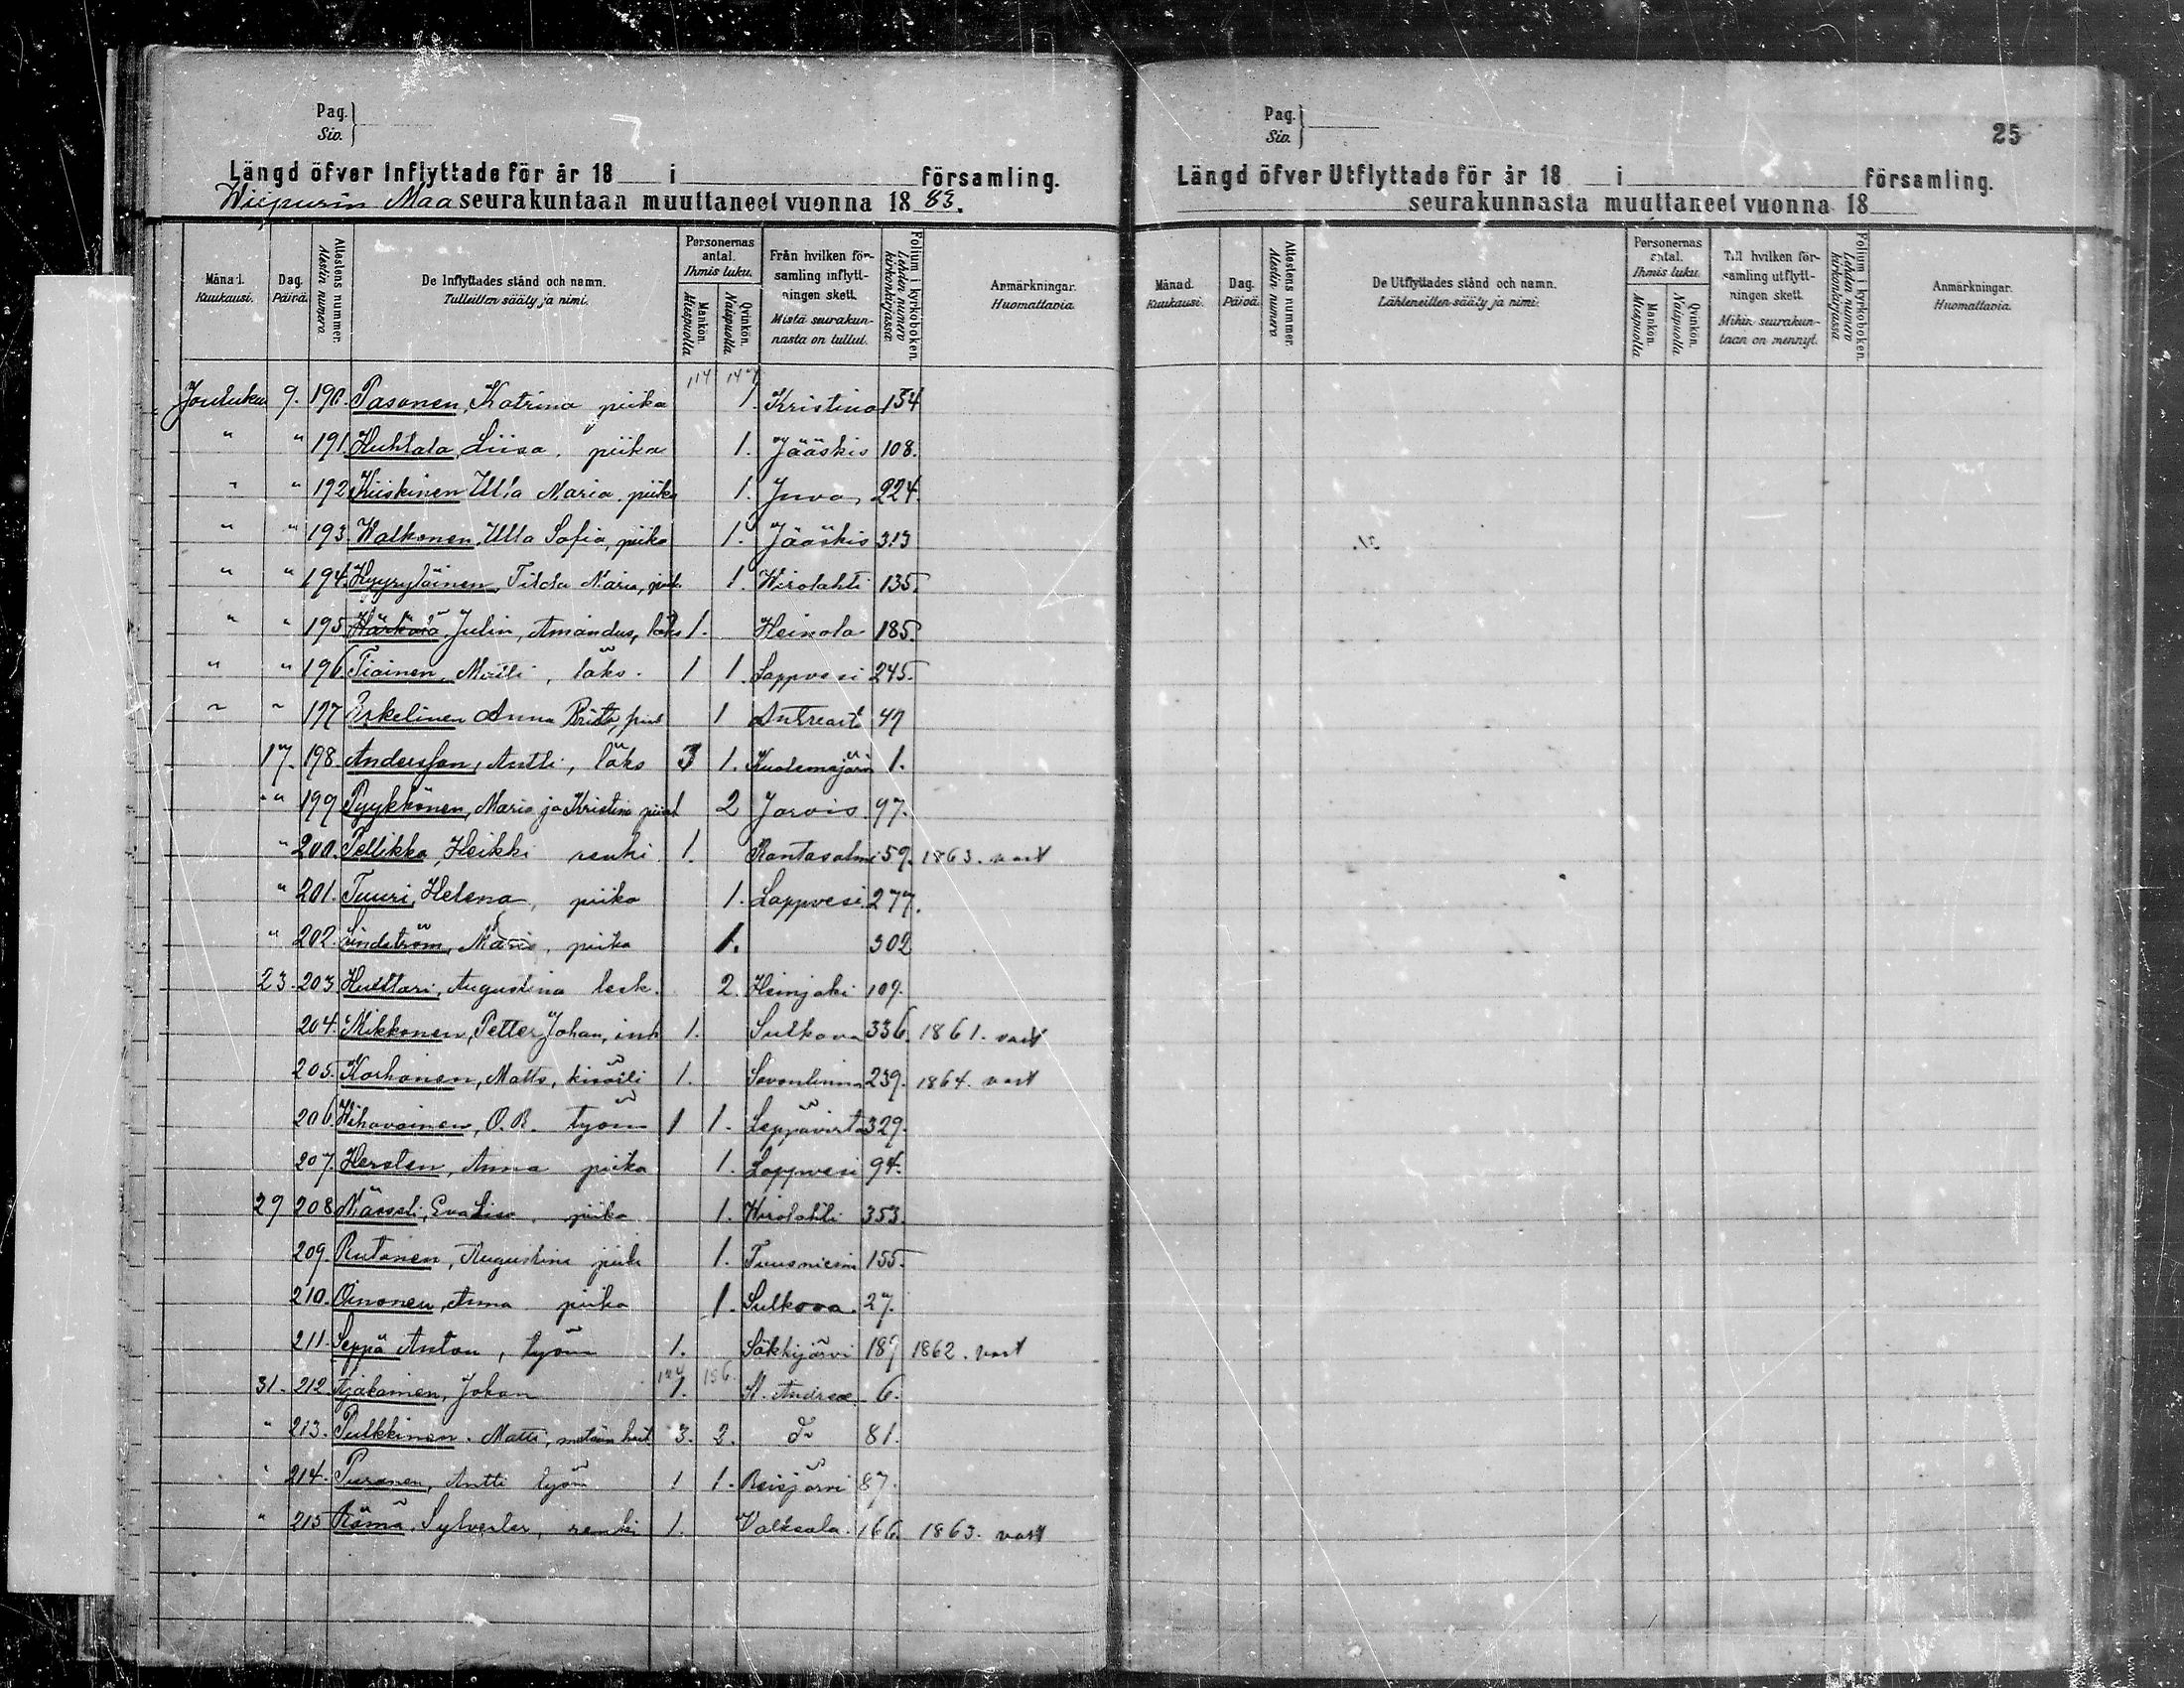 Pag.
Siv.
Längd öfver Inflyttade för år 18 i församling.
Wiipurin Maa seurakuntaan muuttaneet vuonna 18 83.
Månad. Kuukausi.
Dag. Päivä.
Attestens nummer. Atestin numero.
De Inflyttades stånd och namn. Tulleitten sääty ja nimi.
Personernas antal. Ihmis luku.
Mankön. Miespuolia
Qvinkön. Naispuolia
Från hvilken församling inflyttningen skett. Mistä seurakunnasta on tullut.
Folium i kyrkoboken. Lehden numero kirkonkirjassa
Anmärkningar. Huomattavia.
114 147
Jouluku 9. 190. Pasonen, Katrina piika 1. Kristina 154
" " 191 Huhtala, Liisa. piika 1. Jääskis 108.
" " 192 Kiiskinen Ulla Maria. piika 1. Juva 224.
" " 193 Walkonen, Ulla Sofia, piika 1. Jääskis 313
" " 194. Hyyryläinen, Tilda Maria, piika 1. Wirolahti 135.
" " 195 Härkösä Julin, Amandus, läks 1. Heinola 185.
" " 196 Tiainen, Matti, läks. 1 1. Lappvesi 245.
" " 197 Erkelinen Anna Brita, piik 1 Antreast 47
17. 198. Andersson, Antti, läks 3 1. Kuolemajärvi 1.
" " 199 Pyykkönen, Maria ja Kristina piiat 2 Jorois 97.
" 200. Pellikka, Heikki renki. 1. Rantasalmi 59. 1863. vast
" 201. Tuuri, Helena, piika 1. Lappvesi 277.
" 202. Lindström, Maria, piika 1. 302
23. 203 Huttari, Augustina lesk. 2. Heinjoki 109.
204. Mikkonen, Petter Johan, inh 1. Sulkava 336. 1861. vast
205. Korhonen, Matts, kisälli 1. Savonlinna 239. 1864. vast
206. Wihavainen, O. R. työm 1 1. Leppävirta 329.
207. Hersten, Anna piika 1. Lappvesi 94.
29 208 Mässeli, Eva Lisa. piika 1. Wirolahti 353.
209. Rutanen, Augustina piika 1. Tuusniemi 155.
210. Oinonen, Anna piika 1. Sulkova. 27.
211. Seppä Anton, työm 1. Säkkijärvi 187 1862. vast
124 156.
31. 212. Äjäkainen, Johan 1. St. Andreæ 6.
" 213. Pulkkinen. Matti, 3. 2. d:o 81.
" 214. Puranen, Antti työm 1 1. Reisjärvi 87.
" 215 Rämä, Sylvester, renki 1. Valkeala. 166. 1863. vast
Pag.
Siv.
25
Längd öfver Utflyttade för år 18 i församling.
seurakunnasta muuttaneet vuonna 18
Månad. Kuukausi.
Dag. Päivä.
Attestens nummer. Atestin numero
De Utflyttades stånd och namn. Lähteneitten sääty ja nimi.
Personernas antal. Ihmis luku.
Mankön. Miespuolia
Qvinkön. Naispuolia
Till hvilken församling utflyttningen skett. Mihin seurakuntaan on mennyt.
Folium i kyrkoboken. Lehden numero kirkonkirjassa
Anmärkningar. Huomattavia.